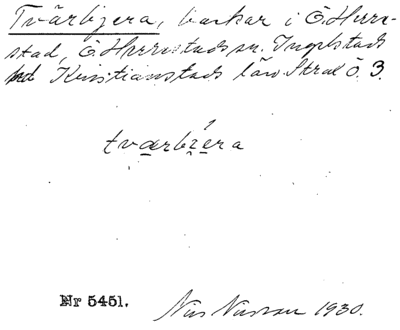 Tvärbjera, backar i Ö. Herre-
stad, Ö. Herrestads sn. Ingelstads
hd Kristianstads län. Strul Ö. 3.
tværbjera
Nr 5451.
Nils Nilsson 1930.